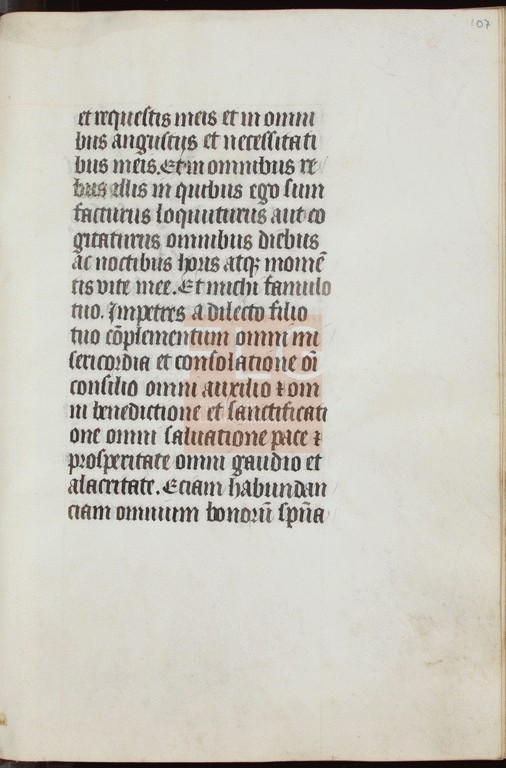 107
et requestis meis et in omni
bus angustiis et necessitati
bus meis. Et in omnibus re
bus illis in quibus ego sum
facturus loquuturus aut co
gitaturus omnibus diebus
ac noctibus horis atq; momē
tis vite mee. Et michi famulo
tuo. Impetres a dilecto filio
tuo cōplementum omni mi
sericordia et consolatione oī
consilio omni auxilio ⁊ om
ni benedictione et sanctificati
one omni saluatione pace ⁊
prosperitate omni gaudio et
alacritate. Eciam habundan
ciam omnium bonorū spūa